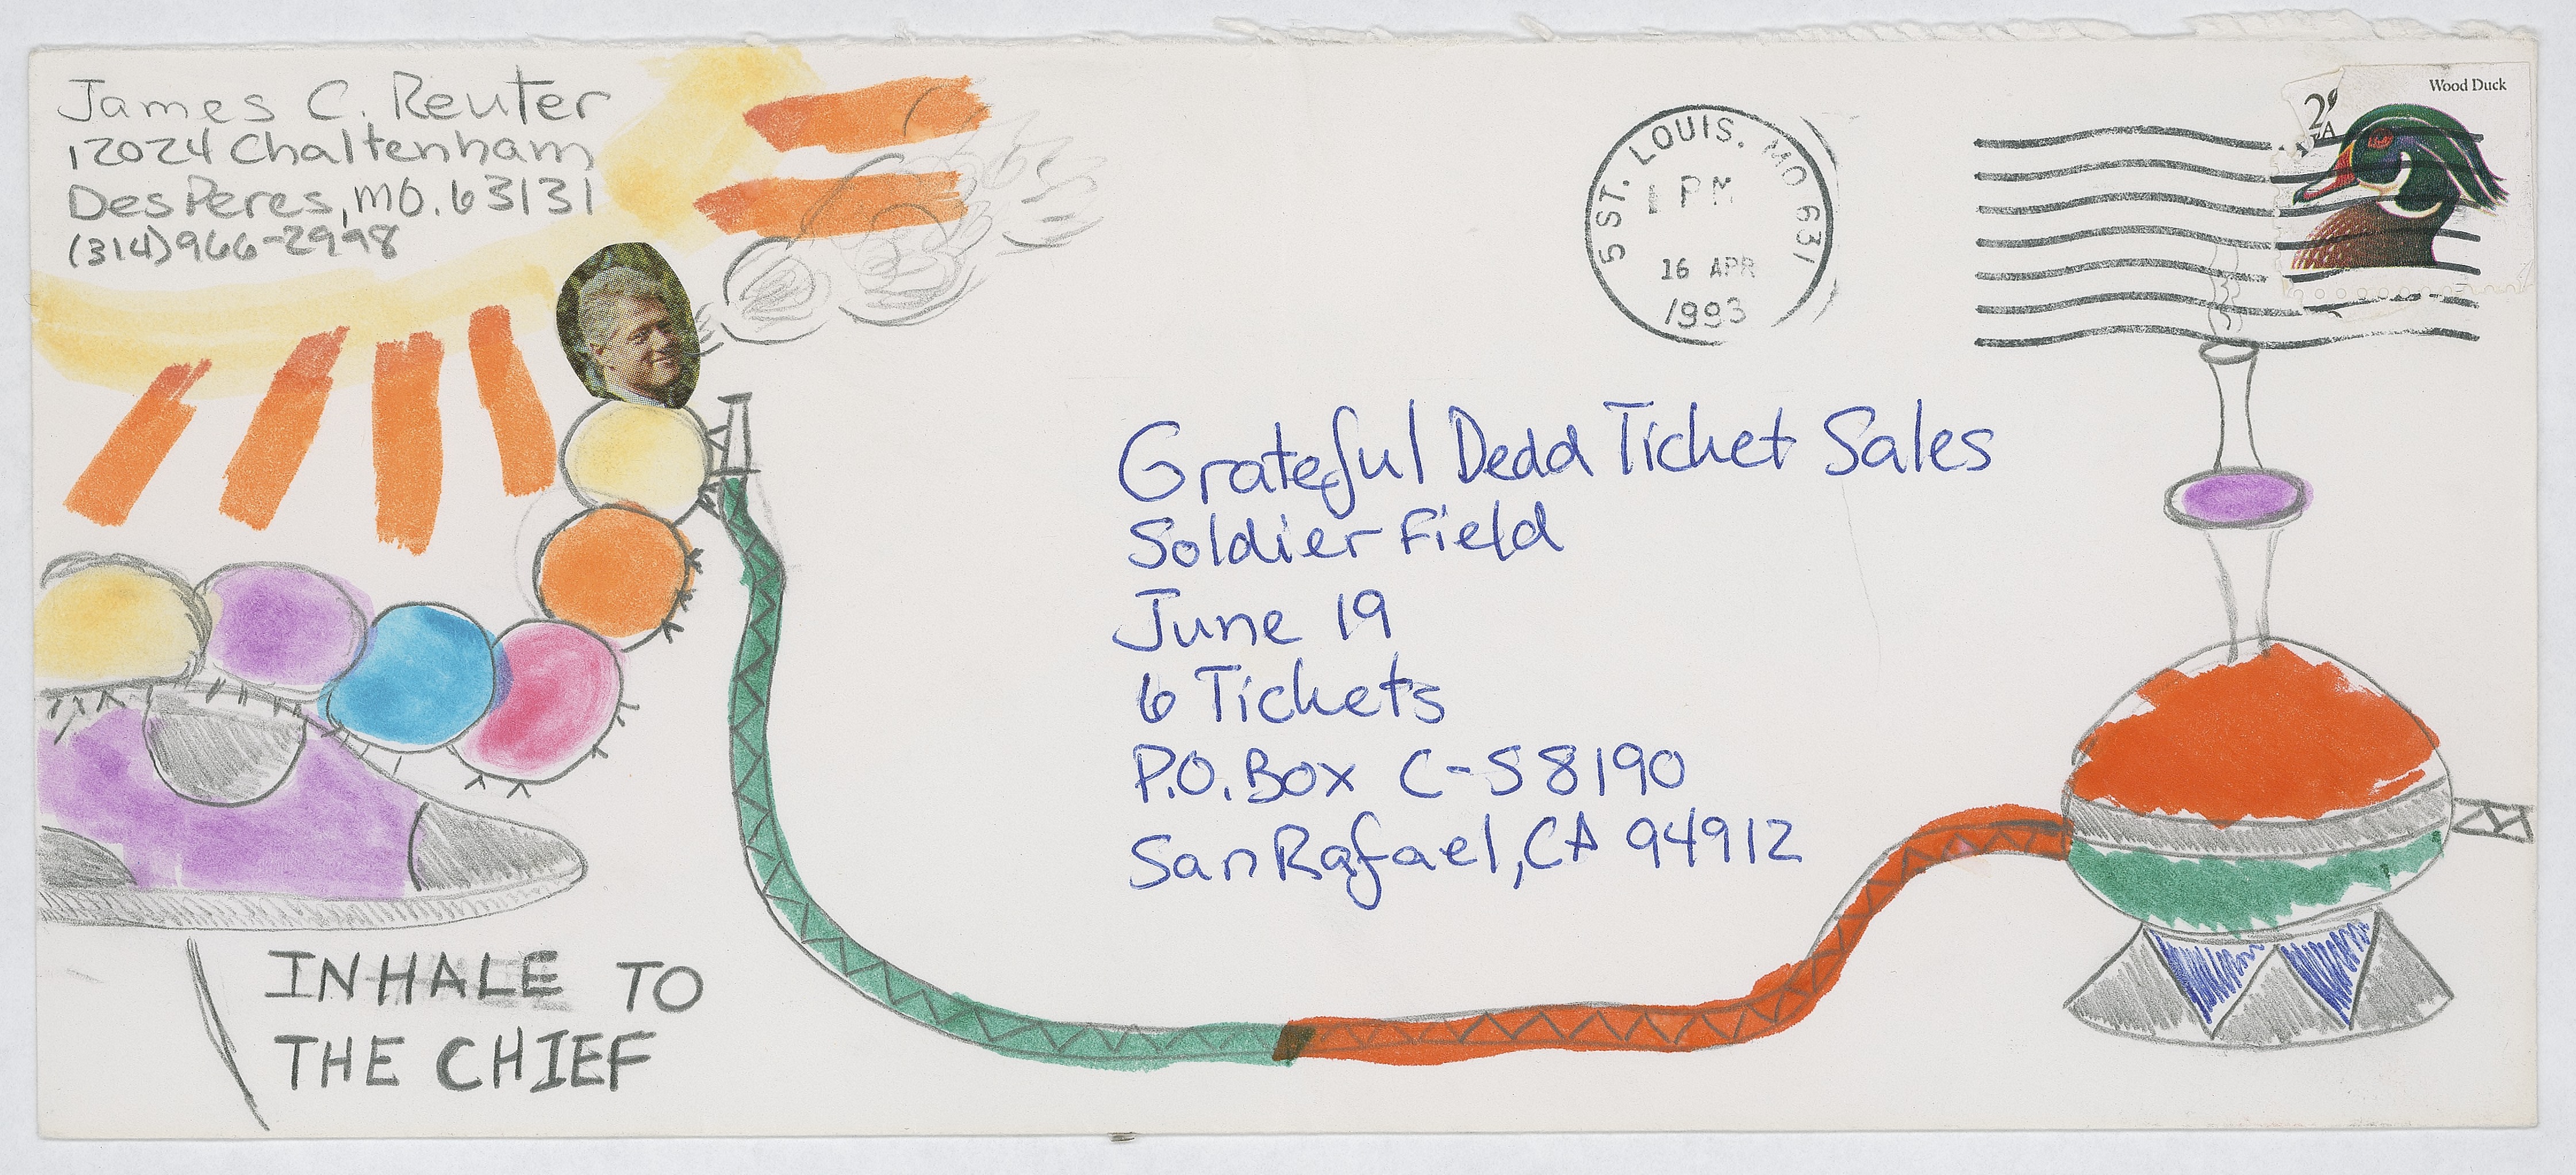 James C. Reuter
12024 Chaltenham
Des Peres, MO. 63131
(314)966-2998
5 ST. LOUIS, MO 631
1 PM
16 APR
1993
Wood Duck
Grateful Dead Ticket Sales
Soldier Field
June 19
6 Tickets
P.O. Box C-S8190
San Rafael, CA 94912
INHALE TO
THE CHIEF